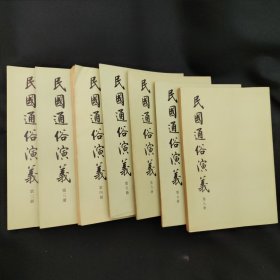 民國通俗演義
第一冊
民國通俗演義
第二冊
民國通俗演義
第四冊
民國通俗演義
第五冊
民國通俗演義
第六冊
民國通俗演義
第七冊
民國通俗演義
第八冊